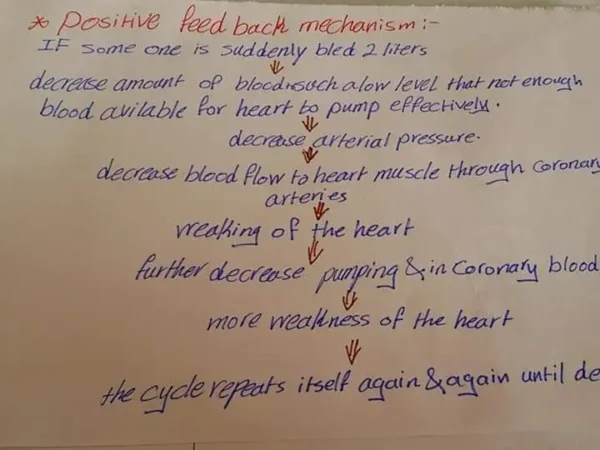 * Positive feed back mechanism:-
IF some one is suddenly bled 2 liters
decrease amount of blood such a low level that not enough
blood avilable for heart to pump effectively.
decrease arterial pressure.
decrease blood flow to heart muscle through coronary
arteries
weaking of the heart
further decrease pumping & in coronary blood
more weakness of the heart
the cycle repeats itself again & again until de